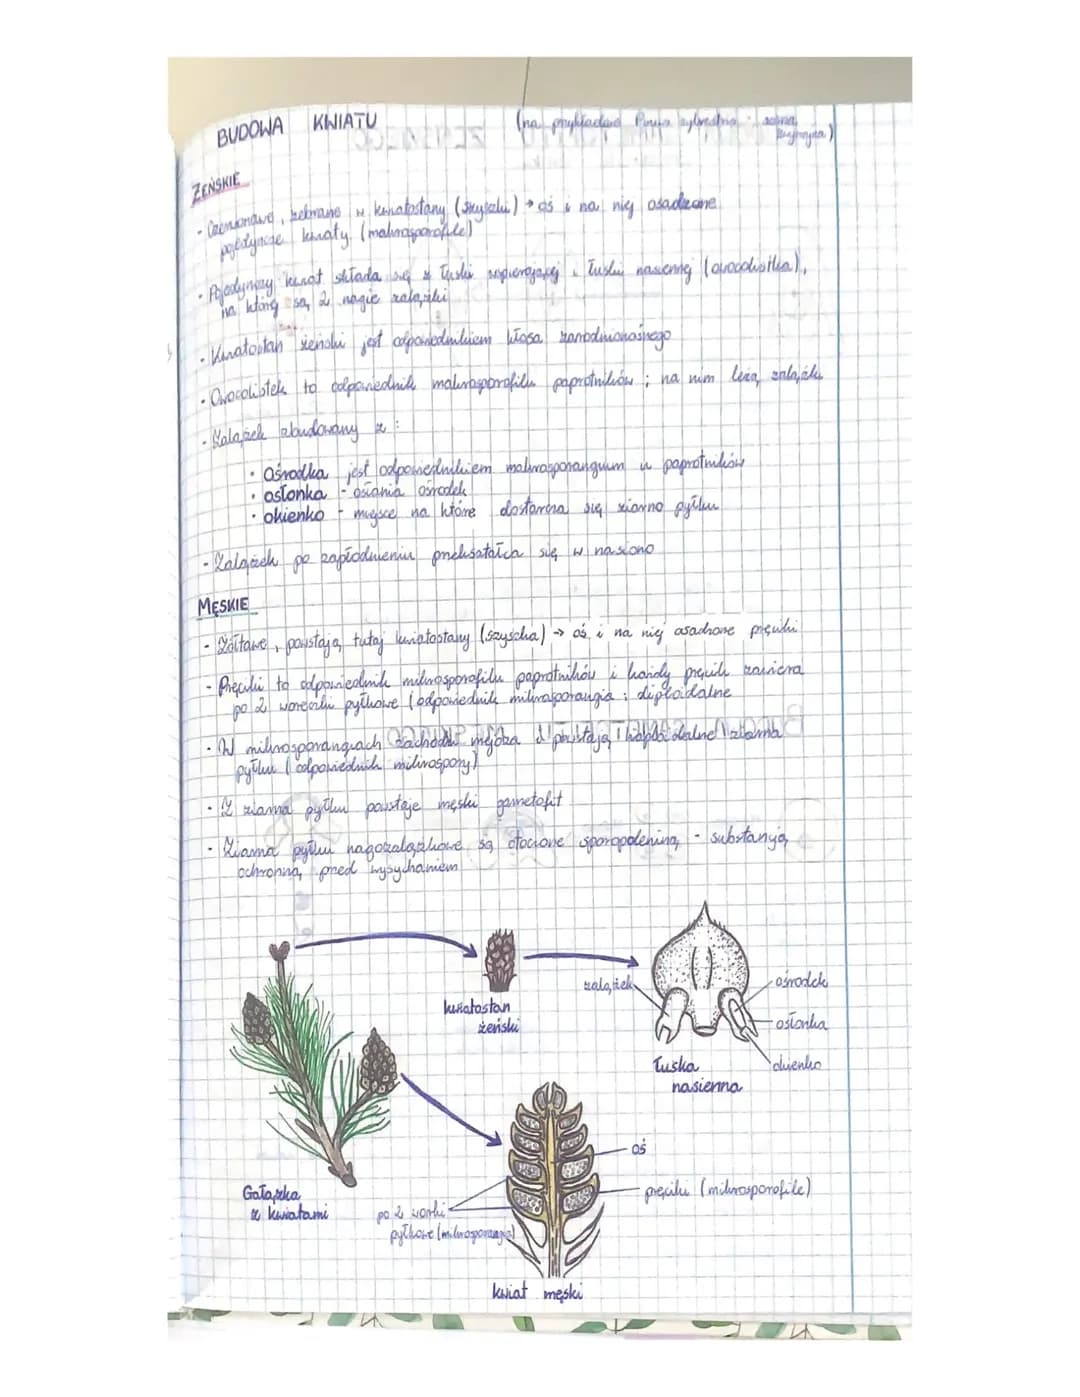 BUDOWA KWIATU (na przykładzie Pinus sylvestris - sosna
zwyczajna)
ŻEŃSKIE
- Czerwonawe, zebrane w kwiatostany (szyszki) → oś i na niej osadzone
pojedyncze kwiaty (makrosporofile)
- Pojedynczy kwiat składa się z łuski wspierającej i łuski nasiennej (owocolistka),
na której są 2 nagie zalążki
- Kwiatostan żeński jest odpowiednikiem kłosa zarodnionośnego
- Owocolistek to odpowiednik makrosporofilu paprotników; na nim leżą zalążki
- Zalążek zbudowany z:
• Ośrodka jest odpowiednikiem makrosporangium u paprotników
• osłonka - osłania ośrodek
• okienko - miejsce na które dostarcza się ziarno pyłku
- Zalążek po zapłodnieniu przekształca się w nasiono
MĘSKIE
- Żółtawe, powstają tutaj kwiatostany (szyszka) → oś i na niej osadzone pręciki
- Pręciki to odpowiednik mikrosporofilu paprotników i każdy pręcik zawiera
po 2 woreczki pyłkowe (odpowiednik mikrosporangia; diploidalne
- W mikrosporangiach zachodzi mejoza i powstają haploidalne ziarna
pyłku (odpowiednik mikrospory)
- Z ziarna pyłku powstaje męski gametofit
- Ziarna pyłku nagozalążkowe są otoczone sporopoleniną - substancją
ochronną przed wysychaniem
kwiatostan
żeński
zalążek
ośrodek
osłonka
okienko
łuska
nasienna
Gałązka
z kwiatami
oś
pręciki (mikrosporofile)
po 2 worki
pyłkowe (mikrosporangia)
kwiat męski